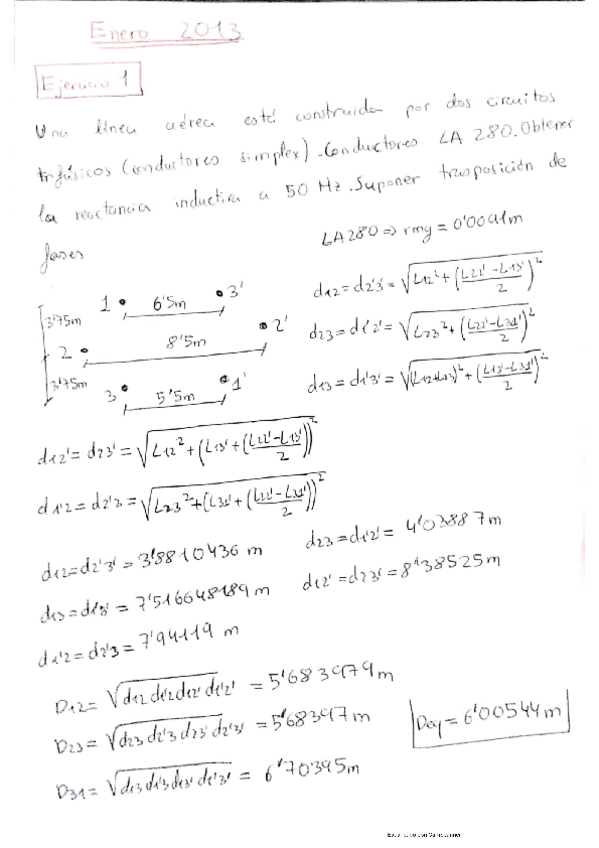 Enero 2013
Ejercicio 1
Una línea aérea está construida por dos circuitos
trifásicos (conductores simplex). Conductores LA 280. Obtener
la reactancia inductiva a 50 Hz. Suponer trasposición de
fases
LA280 => rmg = 0'0091m
1 • 6'5m • 3'
3'75m
2 • 8'5m • 2'
3'75m
3 • 5'5m • 1'
d12 = d2'3' = √(L12² + ((L22' - L13')/2)²)
d23 = d1'2' = √(L23² + ((L22' - L31')/2)²)
d13 = d1'3' = √((L12+L23)² + ((L13' - L31')/2)²)
d12' = d23' = √(L12² + (L13' + ((L22' - L13')/2))²)
d1'2 = d2'3 = √(L23² + (L31' + ((L22' - L31')/2))²)
d12 = d2'3' = 3'8810436 m
d23 = d1'2' = 4'03887 m
d13 = d1'3' = 7'516648189 m
d12' = d23' = 8'38525 m
d1'2 = d2'3 = 7'94119 m
D12 = √(d12 d1'2 d12' d1'2') = 5'683979 m
D23 = √(d23 d2'3 d23' d2'3') = 5'68397 m
D31 = √(d13 d1'3 d13' d1'3') = 6'70395 m
Deq = 6'00544 m